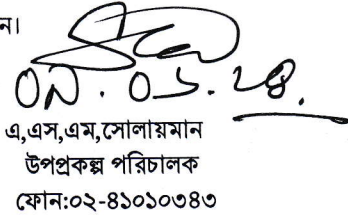 ন।
০৯.০১.২৪.
এ,এস,এম,সোলায়মান
উপপ্রকল্প পরিচালক
ফোন:০২-৪১০১০৩৪৩